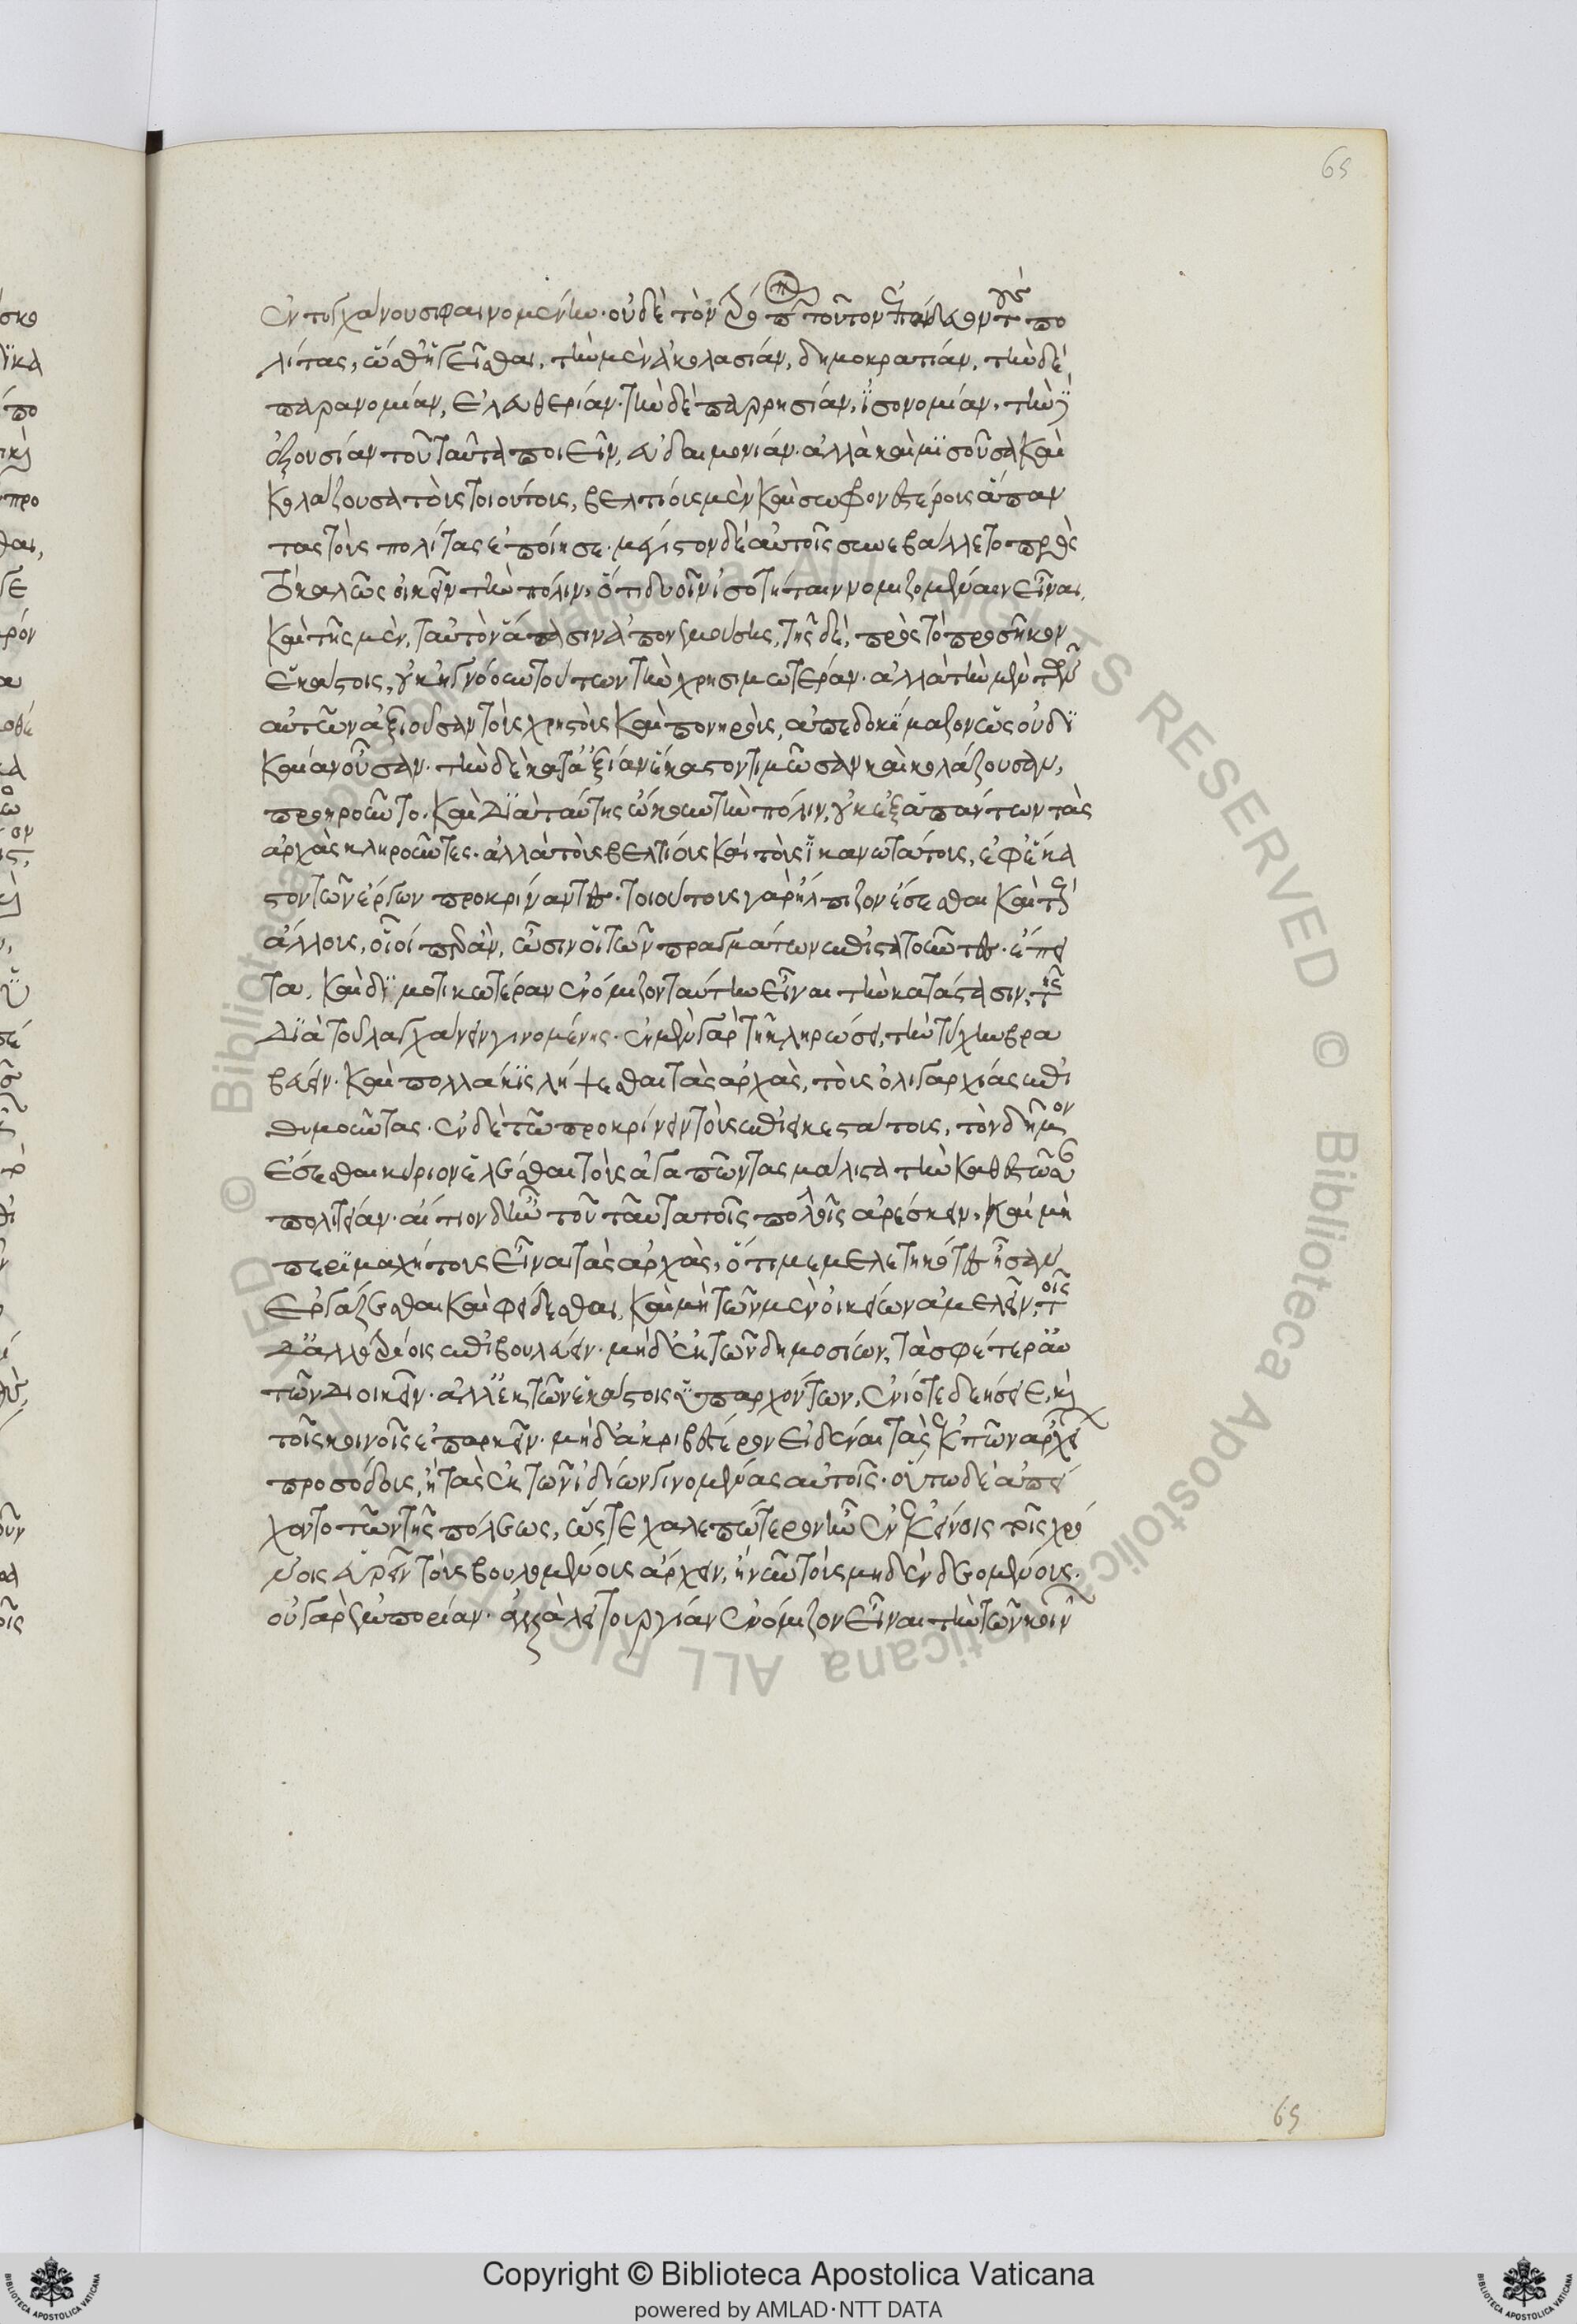 65
ἐντυγχάνουσι φαινομένην· οὐδὲ τὸν τρόπον τοῦτον ἐπαίδευον τοὺς πο
λίτας, ὥσθ' ἡγεῖσθαι, τὴν μὲν ἀκολασίαν, δημοκρατίαν, τὴν δὲ
παρανομίαν, ἐλευθερίαν· τὴν δὲ παρρησίαν, ἰσονομίαν, τὴν δ'
ἐξουσίαν τοῦ ταῦτα ποιεῖν, εὐδαιμονίαν· ἀλλὰ καὶ μισοῦσα καὶ
κολάζουσα τοὺς τοιούτους, βελτίους μὲν καὶ σωφρονεστέρους ἅπαν
τας τοὺς πολίτας ἐποίησε· μέγιστον δὲ αὐτοῖς συνεβάλλετο πρὸς
τὸ καλῶς οἰκεῖν τὴν πόλιν, ὅτι δυοῖν ἰσοτήταιν νομιζομέναιν εἶναι,
καὶ τῆς μὲν, ταὐτὸν ἅπασιν ἀπονεμούσης, τῆς δὲ, πρὸς τὸ προσῆκον
ἑκάστοις, οὐκ ἠγνόουν τούτων τὴν χρησιμωτέραν· ἀλλὰ τὴν μὲν τῶν
αὐτῶν ἀξιοῦσαν τοὺς χρηστοὺς καὶ πονηροὺς, ἀπεδοκίμαζον ὡς οὐ δι
καίαν οὖσαν· τὴν δὲ κατ' ἀξίαν ἕκαστον τιμῶσαν καὶ κολάζουσαν,
προηροῦντο· καὶ διὰ ταύτης ᾤκουν τὴν πόλιν, οὐκ ἐξ ἁπάντων τὰς
ἀρχὰς κληροῦντες· ἀλλὰ τοὺς βελτίους καὶ τοὺς ἱκανωτάτους, ἐφ' ἕκα
στον τῶν ἔργων προκρίναντες· τοιούτους γὰρ ἤλπιζον ἔσεσθαι καὶ τοὺς
ἄλλους, οἷοί περ ἂν, ὦσιν οἱ τῶν πραγμάτων ἐπιστατοῦντες· ἔπει
τα, καὶ δημοτικωτέραν ἐνόμιζον ταύτην εἶναι τὴν κατάστασιν, τῆς
διὰ τοῦ λαγχάνειν γινομένης· ἐν μὲν γὰρ τῇ κληρώσει, τὴν τύχην βρα
βεύειν· καὶ πολλάκις λήψεσθαι τὰς ἀρχὰς, τοὺς ὀλιγαρχίας ἐπι
θυμοῦντας· ἐν δὲ τῷ προκρίνειν τοὺς ἐπιεικεστάτους, τὸν δῆμον
ἔσεσθαι κύριον ἑλέσθαι τοὺς ἀγαπῶντας μάλιστα τὴν καθεστῶσαν
πολιτείαν· αἴτιον δ' ἦν τοῦ ταῦτα τοῖς πολλοῖς ἀρέσκειν, καὶ μὴ
περιμαχήτους εἶναι τὰς ἀρχὰς, ὅτι μεμελετηκότες ἦσαν
ἐργάζεσθαι καὶ φείδεσθαι, καὶ μὴ τῶν μὲν οἰκείων ἀμελεῖν, τοῖς
δ' ἀλλοτρίοις ἐπιβουλεύειν· μηδ' ἐκ τῶν δημοσίων, τὰ σφέτερ' αὐ
τῶν διοικεῖν· ἀλλ' ἐκ τῶν ἑκάστοις ὑπαρχόντων, εἴ ποτε δεήσειε, καὶ
τοῖς κοινοῖς ἐπαρκεῖν· μηδ' ἀκριβέστερον εἰδέναι τὰς ἐκ τῶν ἀρχείων
προσόδους, ἢ τὰς ἐκ τῶν ἰδίων γινομένας αὐτοῖς· οὕτω δὲ ἀπεί
χοντο τῶν τῆς πόλεως, ὥστε χαλεπώτερον ἦν ἐν ἐκείνοις τοῖς χρό
νοις εὑρεῖν τοὺς βουλομένους ἄρχειν, ἢ νῦν τοὺς μηδὲν δεομένους.
οὐ γὰρ ἐμπορίαν· ἀλλὰ λειτουργίαν ἐνόμιζον εἶναι τὴν τῶν κοινῶν
65
Copyright © Biblioteca Apostolica Vaticana
powered by AMLAD·NTT DATA